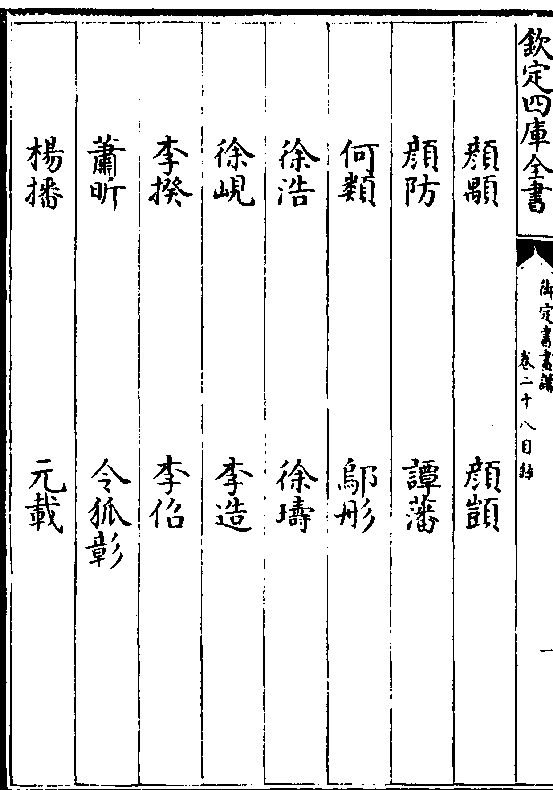 欽定四庫全書
御定書畫譜
卷二十八目錄
一
顔顒 顔顗
顔防 譚藩
何類 鄔彤
徐浩 徐璹
徐峴 李造
李揆 李佋
蕭昕 令狐彰
楊播 元載